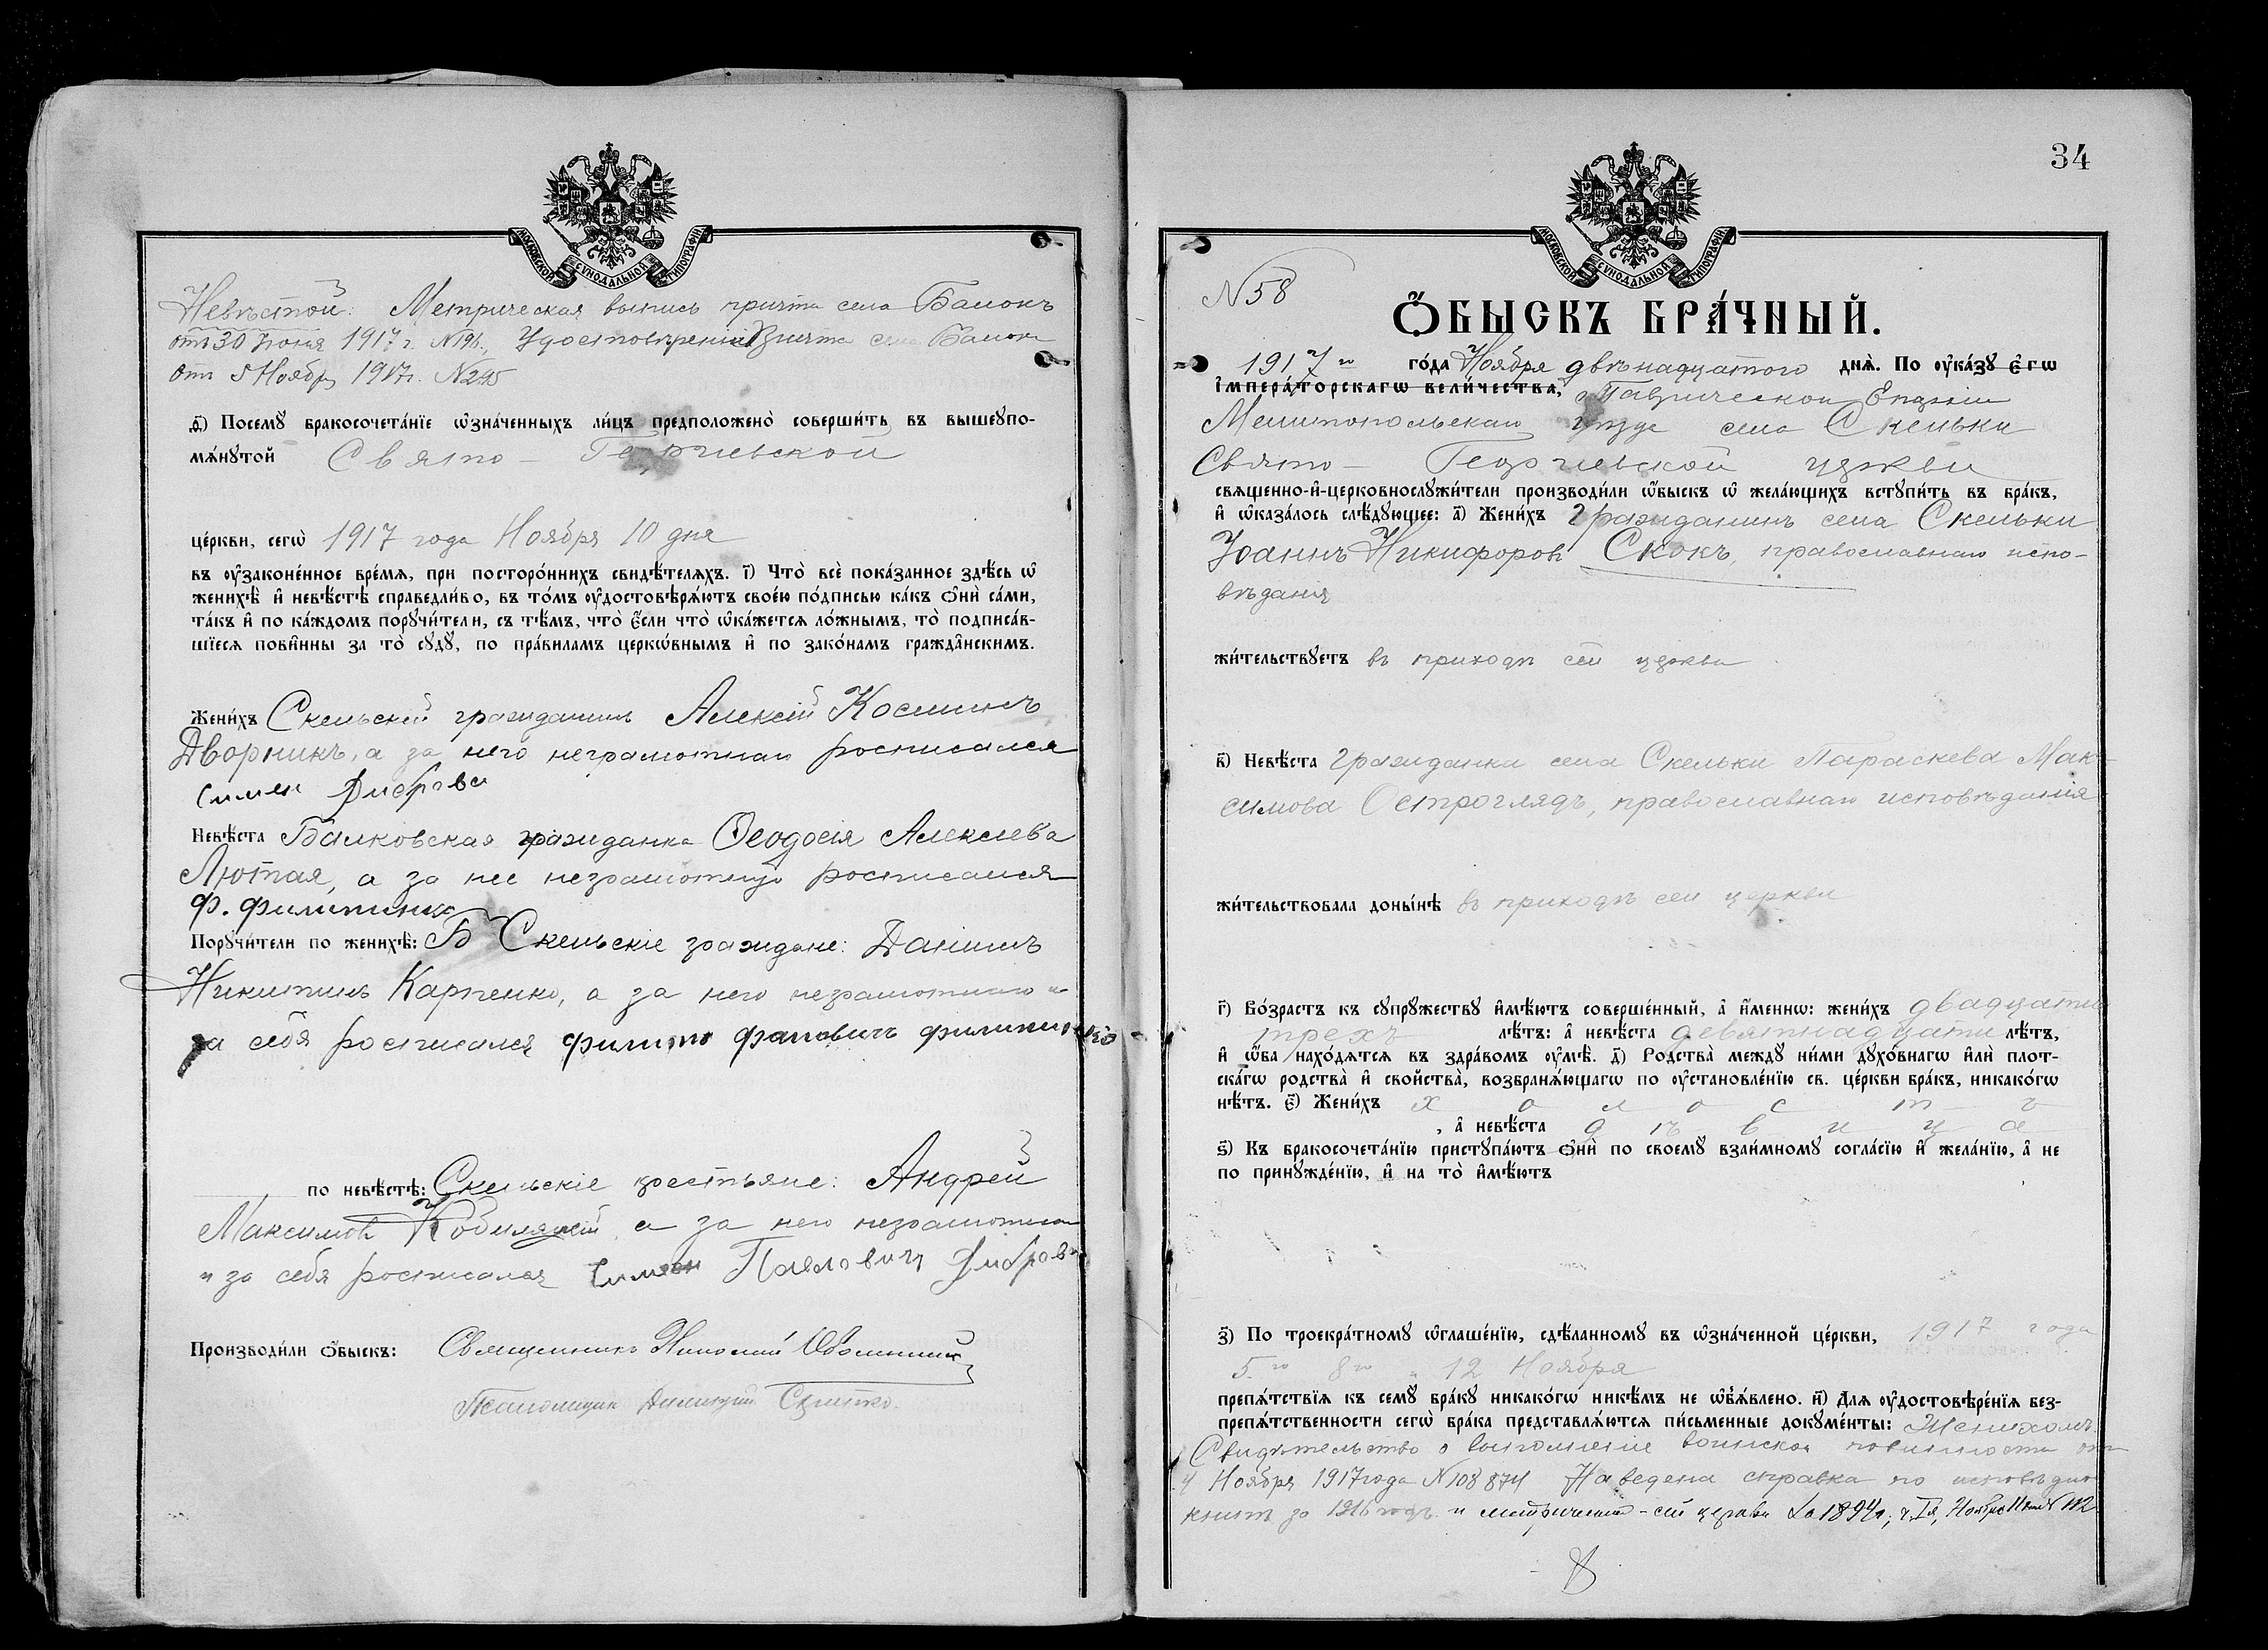 МОСКОВСКОЙ СѴНОДАЛЬНОЙ ТИПОГРАФІИ
Невѣстой: Метрическая выпись причта села Балокъ
отъ 30 Іюня 1917 г. №196, Удостовѣреніе Причта села Балокъ
отъ 5 Ноября 1917г. №295
д҃і) Посемꙋ̀ бракосочета́нїе ѡ҆зна́ченныхъ ли́цъ предположено̀ соверши́ть въ вышеꙋпо-
мѧ́нꙋтой Свято - Георгіевской
це́ркви, сегѡ̀ 1917 года Ноября 10 дня
въ ᲂу҆законе́нное вре́мѧ, при посторо́ннихъ свидѣ́телѧхъ. і҃) Что̀ всѐ пока́занное здѣ́сь ѡ҆
женихѣ̀ и҆ невѣ́стѣ справедли́во, въ то́мъ ᲂу҆достовѣрѧ́ютъ свое́ю по́дписью ка́къ ѻ҆нѝ са́ми,
та́къ и҆ по ка́ждомъ порꙋчи́тели, съ тѣ́мъ, что̀ є҆́сли что̀ ѡ҆ка́жетсѧ ло́жнымъ, то̀ подписа́в-
шїесѧ пови́нны за то̀ сꙋдꙋ̀, по пра́виламъ церкѡ́внымъ и҆ по зако́намъ гражда̂нскимъ.
Жени́хъ Скельскій гражданинъ Алексій Косминъ
Дворникъ, а за него неграмотнаго росписался
Симен Диброва
Невѣ́ста Балковская гражданка Ѳеодосія Алексеева
Лютая, а за нее неграмотную росписался
Ф. Филипенко
Порꙋчи́тели по женихѣ̀: Скельскіе граждане: Даніилъ
Никитинъ Карпенко, а за него неграмотнаго и
за себя росписался Филипп Филипенко
по невѣ́стѣ: Скельскіе крестьяне: Андрей
Максимовъ Кобиляцкій, а за него неграмотнаго
и за себя росписался Симеон Павловичъ Диброва
Производи́ли ѻ҆́быскъ: Священникъ Николай
Псаломщик Димитрій
34
МОСКОВСКОЙ СѴНОДАЛЬНОЙ ТИПОГРАФІИ
N58
Ѻ҆́БЫСКЪ БРА́ЧНЫЙ.
1917го го́да Ноября двѣнадцатого днѧ̀. По ᲂу҆ка́зꙋ є҆гѡ̀
і҆мпера́торскагѡ вели́чества, Таврической Епархіи
Мелитопольскаго уѣзда села Скельки
Свято - Георгіевской церкви
свѧще́нно-и҆-церковнослꙋжи́тели производи́ли ѡ҆́быскъ ѡ҆ жела́ющихъ встꙋпи́ть въ бра́къ,
и҆ ѡ҆каза́лось слѣ́дꙋющее: а҃) Жени́хъ гражданинъ села Скельки
Іоаннъ Никифоровъ Скокъ, православнаго испо-
вѣданія
жи́тельствꙋетъ въ приходѣ сей церкви
в҃) Невѣ́ста гражданка села Скельки Параскева Мак-
симова Остроглядъ, православнаго исповѣданія
жи́тельствовала доны́нѣ въ приходѣ сей церкви
г҃) Во́зрастъ къ сꙋпрꙋ́жествꙋ и҆мѣ́ютъ соверше́нный, а҆ и҆́меннѡ: жени́хъ двадцати
трехъ лѣ́тъ: а҆ невѣ́ста девятнадцати лѣ́тъ,
и҆ ѻ҆́ба нахо́дѧтсѧ въ здра́вомъ ᲂу҆мѣ̀. д҃) Родства̀ междꙋ̀ ни́ми дꙋхо́внагѡ и҆лѝ плот-
ска́гѡ родства̀ и҆ сво́йства̀, возбранѧ́ющагѡ по ᲂу҆становле́нїю св. це́ркви бра́къ, никако́гѡ
нѣ́тъ. є҃) Жени́хъ холостъ
, а҆ невѣ́ста дѣвица
ѕ҃) Къ бракосочета́нїю пристꙋпа́ютъ ѻ҆нѝ по своемꙋ̀ взаи́мномꙋ согла́сїю и҆ жела́нїю, а҆ не
по принꙋжде́нїю, и҆ на то̀ и҆мѣ́ютъ
з҃) По троекра́тномꙋ ѡ҆глаше́нїю, сдѣ́ланномꙋ въ ѡ҆зна́ченной це́ркви, 1917 года
5го 8го и 12 Ноября
препѧ́тствїѧ къ семꙋ̀ бра́кꙋ никако́гѡ никѣ́мъ не ѡ҆б̾ѧ́влено. и҃) Длѧ̀ ᲂу҆достовѣре́нїѧ без-
препѧ́тственности сегѡ̀ бра́ка представлѧ́ютсѧ пи́сьменные докꙋме́нты: Женихомъ
Свидѣтельство о выполненіе воинской повинности отъ
4 Ноября 1917 года N108874 Наведена справка по исповѣдной
книгѣ за 1916 годъ и метрической - сей церкви за 1894г, ч. Iя, Ноября 11 дня № 112